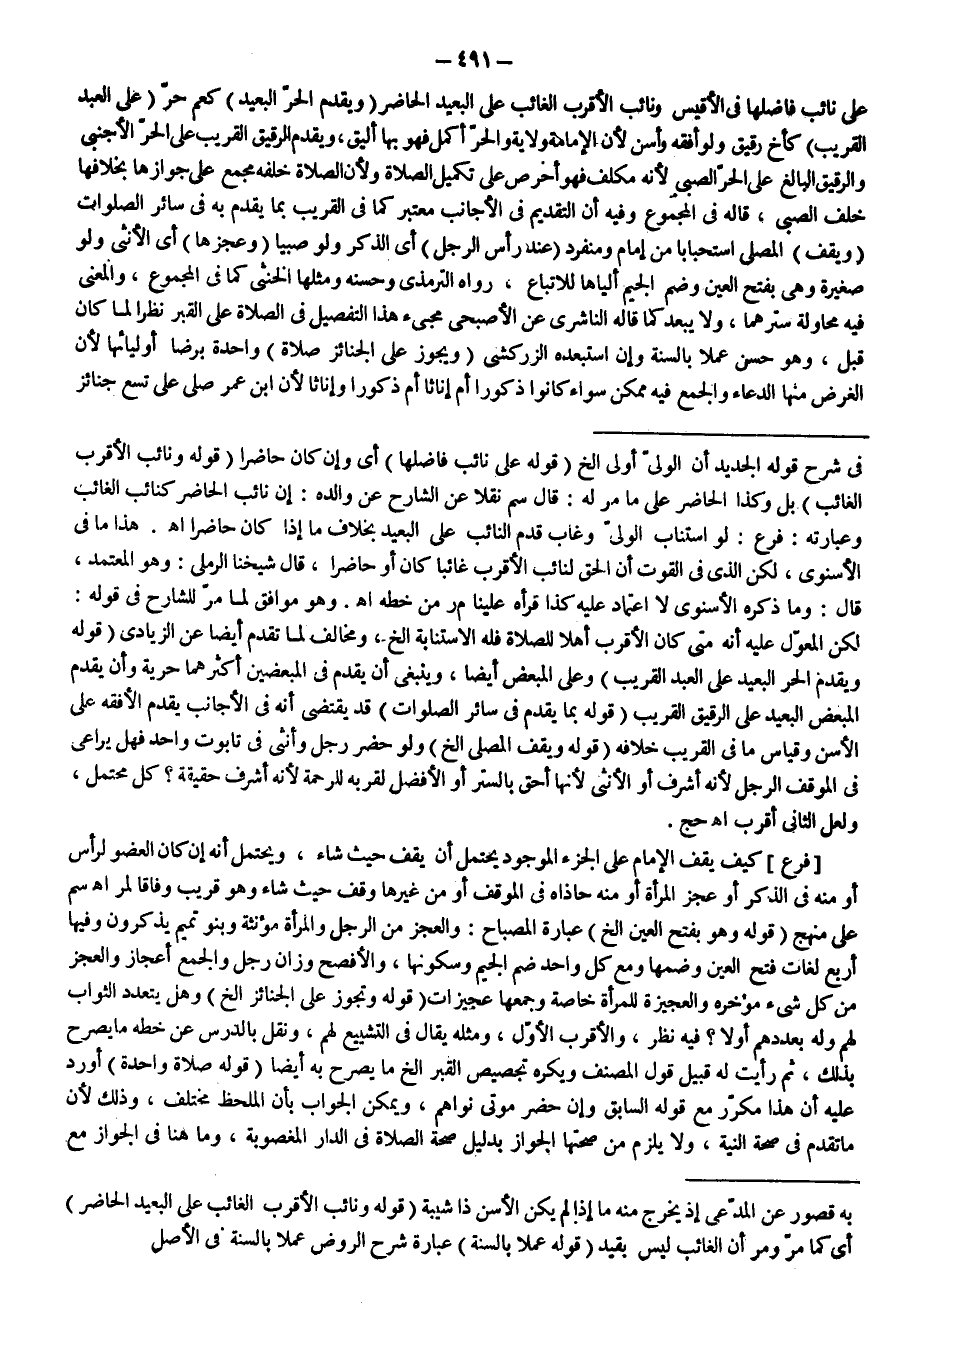 – ٤٩١ –
على نائب فاضلها فى الأقيس ونائب الأقرب الغائب على البعيد الحاضر (ويقدم الحرّ البعيد) كعم حرّ (على العبد
القريب) كأخ رقيق ولو أفقه وأسن لأن الإمامة ولاية والحرّ أكمل فهو بها أليق، ويقدم الرقيق القريب على الحرّ الأجنبي
والرقيق البالغ على الحرّ الصبي لأنه مكلف فهو أحرص على تكميل الصلاة ولأن الصلاة خلفه مجمع على جوازها بخلافها
خلف الصبي ، قاله فى المجموع وفيه أن التقديم فى الأجانب معتبر كما فى القريب بما يقدم به فى سائر الصلوات
(ويقف) المصلى استحبابا من إمام ومنفرد (عند رأس الرجل) أى الذكر ولو صبيا (وعجزها) أى الأنثى ولو
صغيرة وهى بفتح العين وضم الجيم ألياها للاتباع ، رواه الترمذى وحسنه ومثلها الخنثى كما فى المجموع ، والمعنى
فيه محاولة سترهما ، ولا يبعد كما قاله الناشرى عن الأصبحى مجىء هذا التفصيل فى الصلاة على القبر نظرا لما كان
قبل ، وهو حسن عملا بالسنة وإن استبعده الزركشى (ويجوز على الجنائز صلاة) واحدة برضا أوليائها لأن
الغرض منها الدعاء والجمع فيه ممكن سواء كانوا ذكورا أم إناثا أم ذكورا وإناثا لأن ابن عمر صلى على تسع جنائز
فى شرح قوله الجديد أن الولىّ أولى الخ (قوله على نائب فاضلها) أى وإن كان حاضرا (قوله ونائب الأقرب
الغائب) بل وكذا الحاضر على ما مر له : قال سم نقلا عن الشارح عن والده : إن نائب الحاضر كنائب الغائب
وعبارته : فرع : لو استناب الولىّ وغاب قدم النائب على البعيد بخلاف ما إذا كان حاضرا اه . هذا ما فى
الأسنوى ، لكن الذى فى القوت أن الحق لنائب الأقرب غائبا كان أو حاضرا ، قال شيخنا الرملى : وهو المعتمد ،
قال : وما ذكره الأسنوى لا اعتماد عليه كذا قرأه علينا مر من خطه اه . وهو موافق لما مرّ للشارح فى قوله :
لكن المعوّل عليه أنه متى كان الأقرب أهلا للصلاة فله الاستنابة الخ ، ومخالف لما تقدم أيضا عن الزيادى (قوله
ويقدم الحر البعيد على العبد القريب) وعلى المبعض أيضا ، وينبغى أن يقدم فى المبعضين أكثرهما حرية وأن يقدم
المبعض البعيد على الرقيق القريب (قوله بما يقدم فى سائر الصلوات) قد يقتضى أنه فى الأجانب يقدم الأفقه على
الأسن وقياس ما فى القريب خلافه (قوله ويقف المصلى الخ) ولو حضر رجل وأنثى فى تابوت واحد فهل يراعى
فى الموقف الرجل لأنه أشرف أو الأنثى لأنها أحق بالستر أو الأفضل لقربه للرحمة لأنه أشرف حقيقة ؟ كل محتمل ،
ولعل الثانى أقرب اه حج .
[فرع] كيف يقف الإمام على الجزء الموجود يحتمل أن يقف حيث شاء ، ويحتمل أنه إن كان العضو لرأس
أو منه فى الذكر أو عجز المرأة أو منه حاذاه فى الموقف أو من غيرها وقف حيث شاء وهو قريب وفاقا لمر اه سم
على منهج (قوله وهو بفتح العين الخ) عبارة المصباح : والعجز من الرجل والمرأة مؤنثة وبنو تميم يذكرون وفيها
أربع لغات فتح العين وضمها ومع كل واحد ضم الجيم وسكونها ، والأفصح وزان رجل والجمع أعجاز والعجز
من كل شىء مؤخره والعجيزة للمرأة خاصة وجمعها عجيزات (قوله وتجوز على الجنائز الخ) وهل يتعدد الثواب
لهم وله بعددهم أولا ؟ فيه نظر ، والأقرب الأوّل ، ومثله يقال فى التشييع لهم ، ونقل بالدرس عن خطه ما يصرح
بذلك ، ثم رأيت له قبيل قول المصنف ويكره تجصيص القبر الخ ما يصرح به أيضا (قوله صلاة واحدة) أورد
عليه أن هذا مكرّر مع قوله السابق وإن حضر موتى نواهم ، ويمكن الجواب بأن الملحظ مختلف ، وذلك لأن
ماتقدم فى صحة النية ، ولا يلزم من صحتها الجواز بدليل صحة الصلاة فى الدار المغصوبة ، وما هنا فى الجواز مع
به قصور عن المدّعى إذ يخرج منه ما إذا لم يكن الأسن ذا شيبة (قوله ونائب الأقرب الغائب على البعيد الحاضر)
أى كما مرّ ومر أن الغائب ليس بقيد (قوله عملا بالسنة) عبارة شرح الروض عملا بالسنة فى الأصل